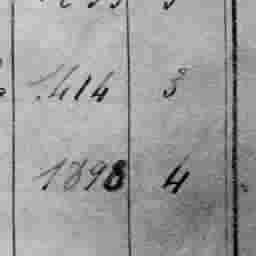 1414 3
1898 4